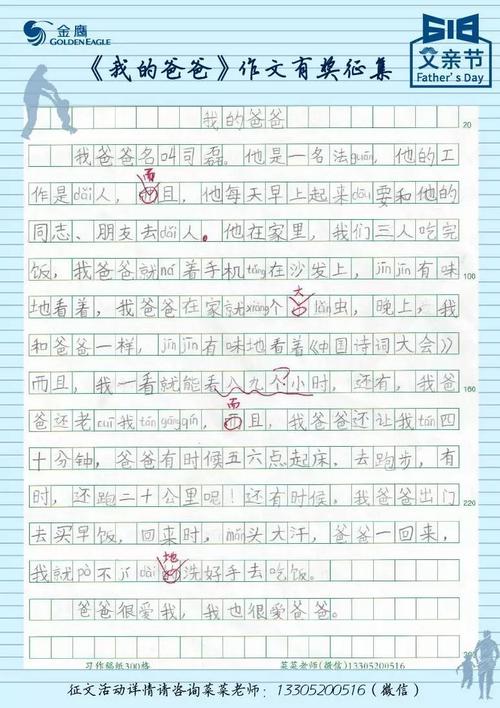 金鹰
GOLDEN EAGLE
618
父亲节
Father's Day
《我的爸爸》作文有奖征集
我的爸爸
20
我爸爸名叫司磊。他是一名法guān,他的工
而
作是dǎi人,且,他每天早上起来dōu要和他的
同志、朋友去dǎi人。他在家里,我们三人吃完
饭,我爸爸就ná着手机tǎng在沙发上,jīn jīn有味
100
地看着,我爸爸在家就xiàng个
大
lǎn虫,晚上,我
和爸爸一样,jīn jīn有味地看着《中国诗词大会》
而且,我一看就能看八九个小时,还有,我爸
?
160
而
爸还老cuī我tán gāng qín,且,我爸爸还让我tán四
十分钟,爸爸有时候五六点起床。去跑步,有
时,还跑二十公里呢!还有时候,我爸爸出门
220
去买早饭,回来时,mǎn头大汗,爸爸一回来,
地
我就pò不jí dài洗好手去吃饭。
爸爸很爱我,我也很爱爸爸。
300
习作稿纸300格
菜菜老师(微信)13305200516
征文活动详情请咨询菜菜老师:13305200516(微信)